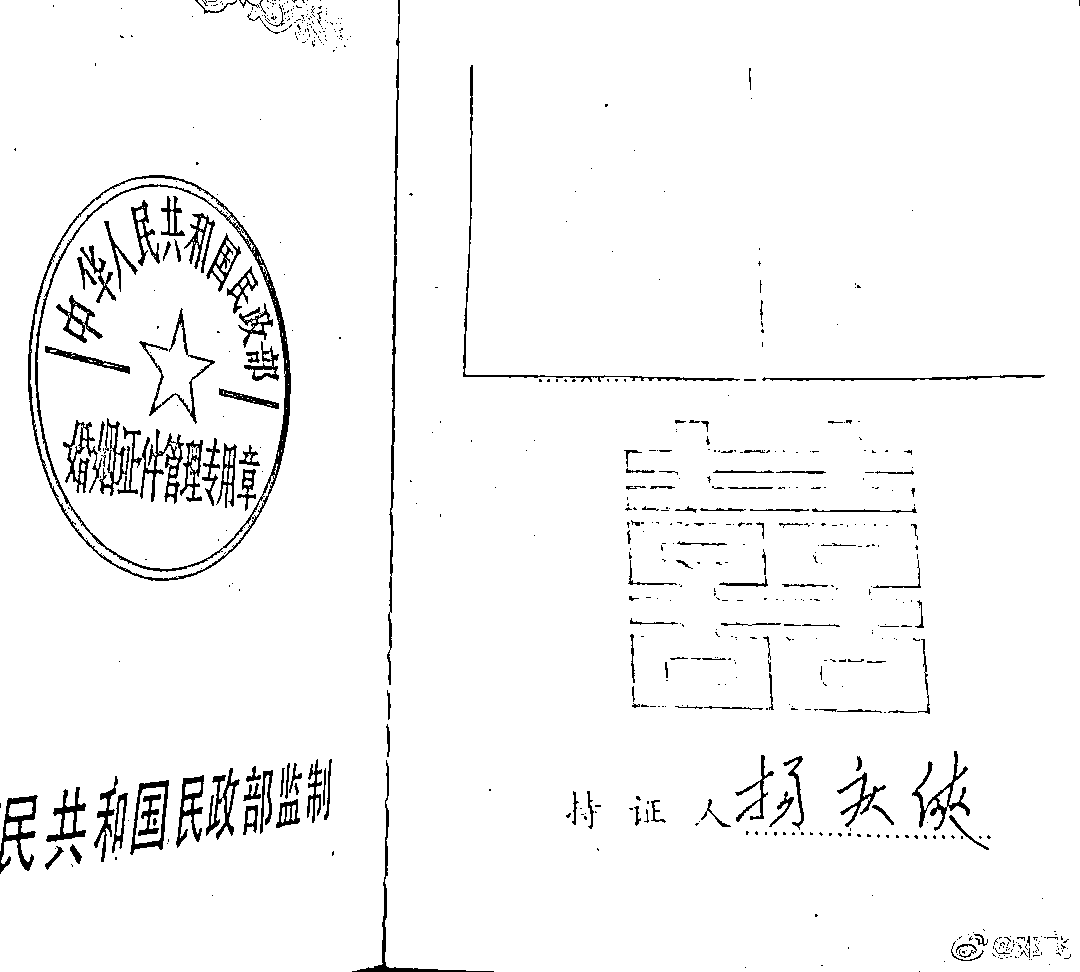 中华人民共和国民政部
婚姻证件管理专用章
民共和国民政部监制
囍
持证人 杨庆侠
@邓飞